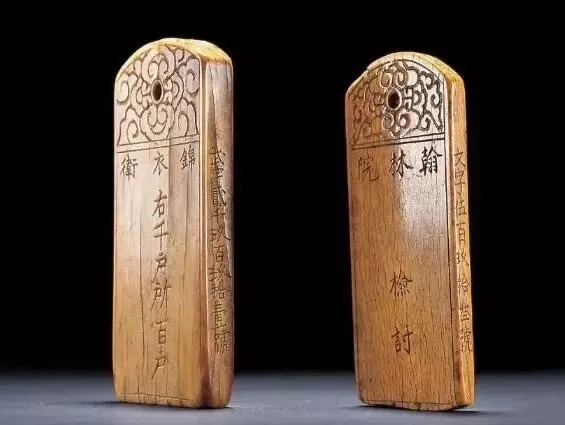 錦衣衛
右千戶所百戶
武字貳千玖百玖拾壹號
翰林院
檢討
文字伍百玖拾叁號